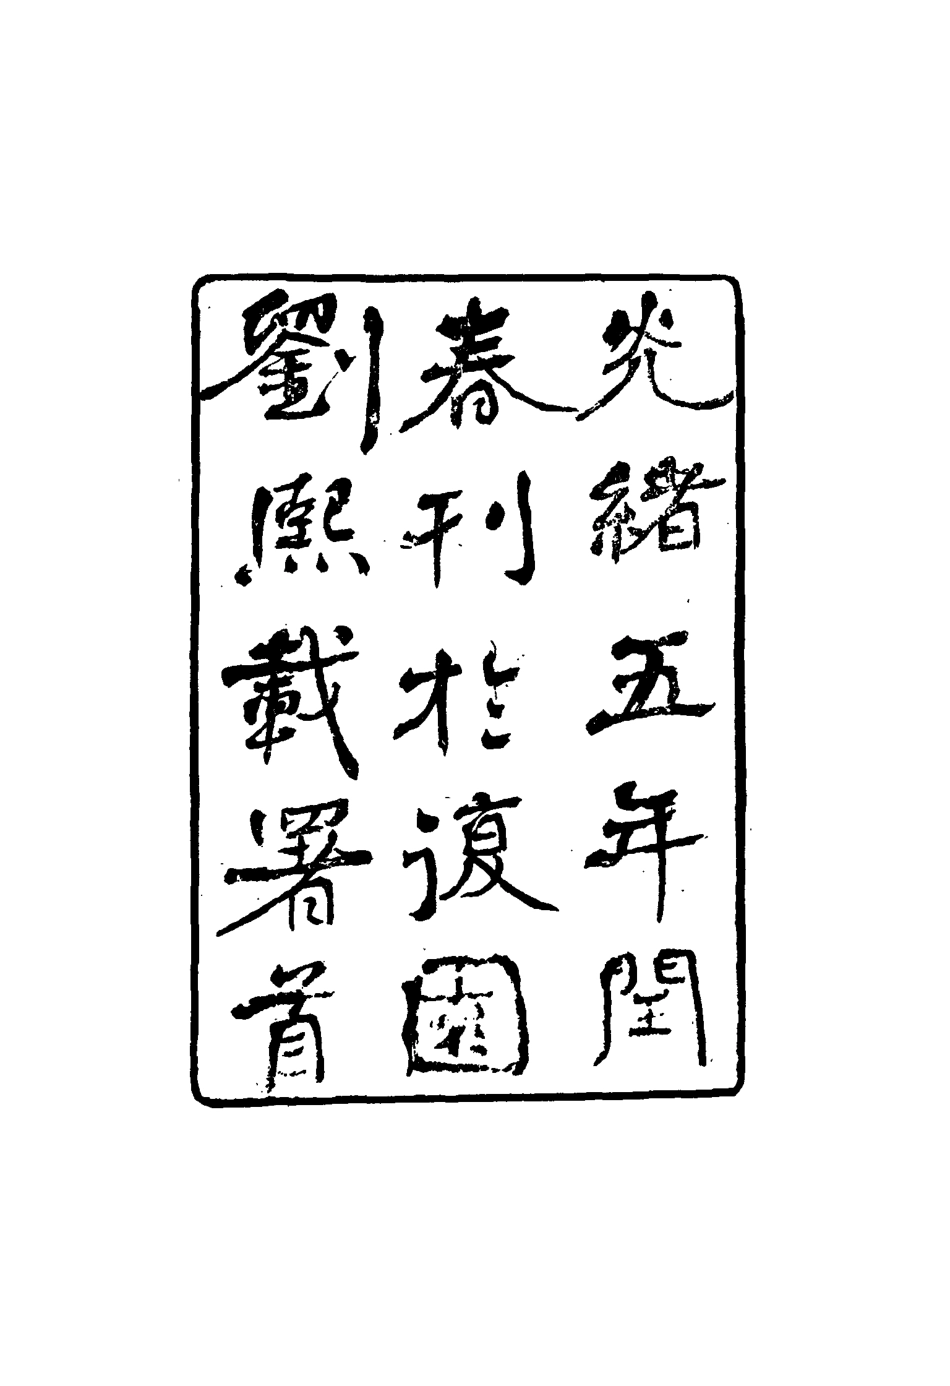 光緒五年閏
春刊於復園
劉熙載署首